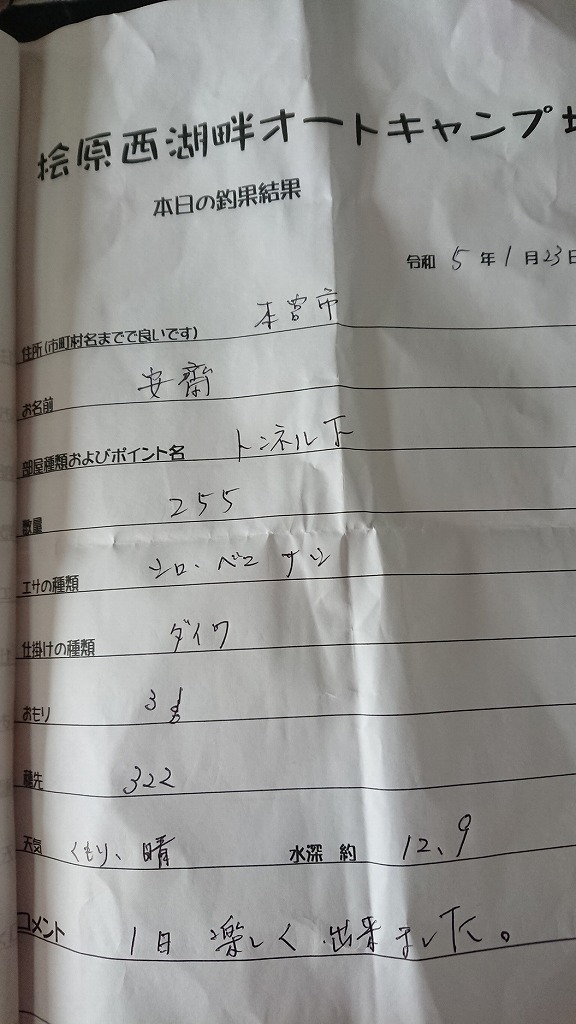 桧原西湖畔オートキャンプ場
本日の釣果結果
令和 5 年 1 月 23 日
住所(市町村名までで良いです) 本宮市
お名前 安齋
部屋種類およびポイント名 トンネル下
数量 255
エサの種類 シロ、ベニサシ
仕掛けの種類 ダイワ
おもり 3g
穂先 322
天気 くもり、晴 水深 約 12、9
コメント 1日 楽しく出来ました。